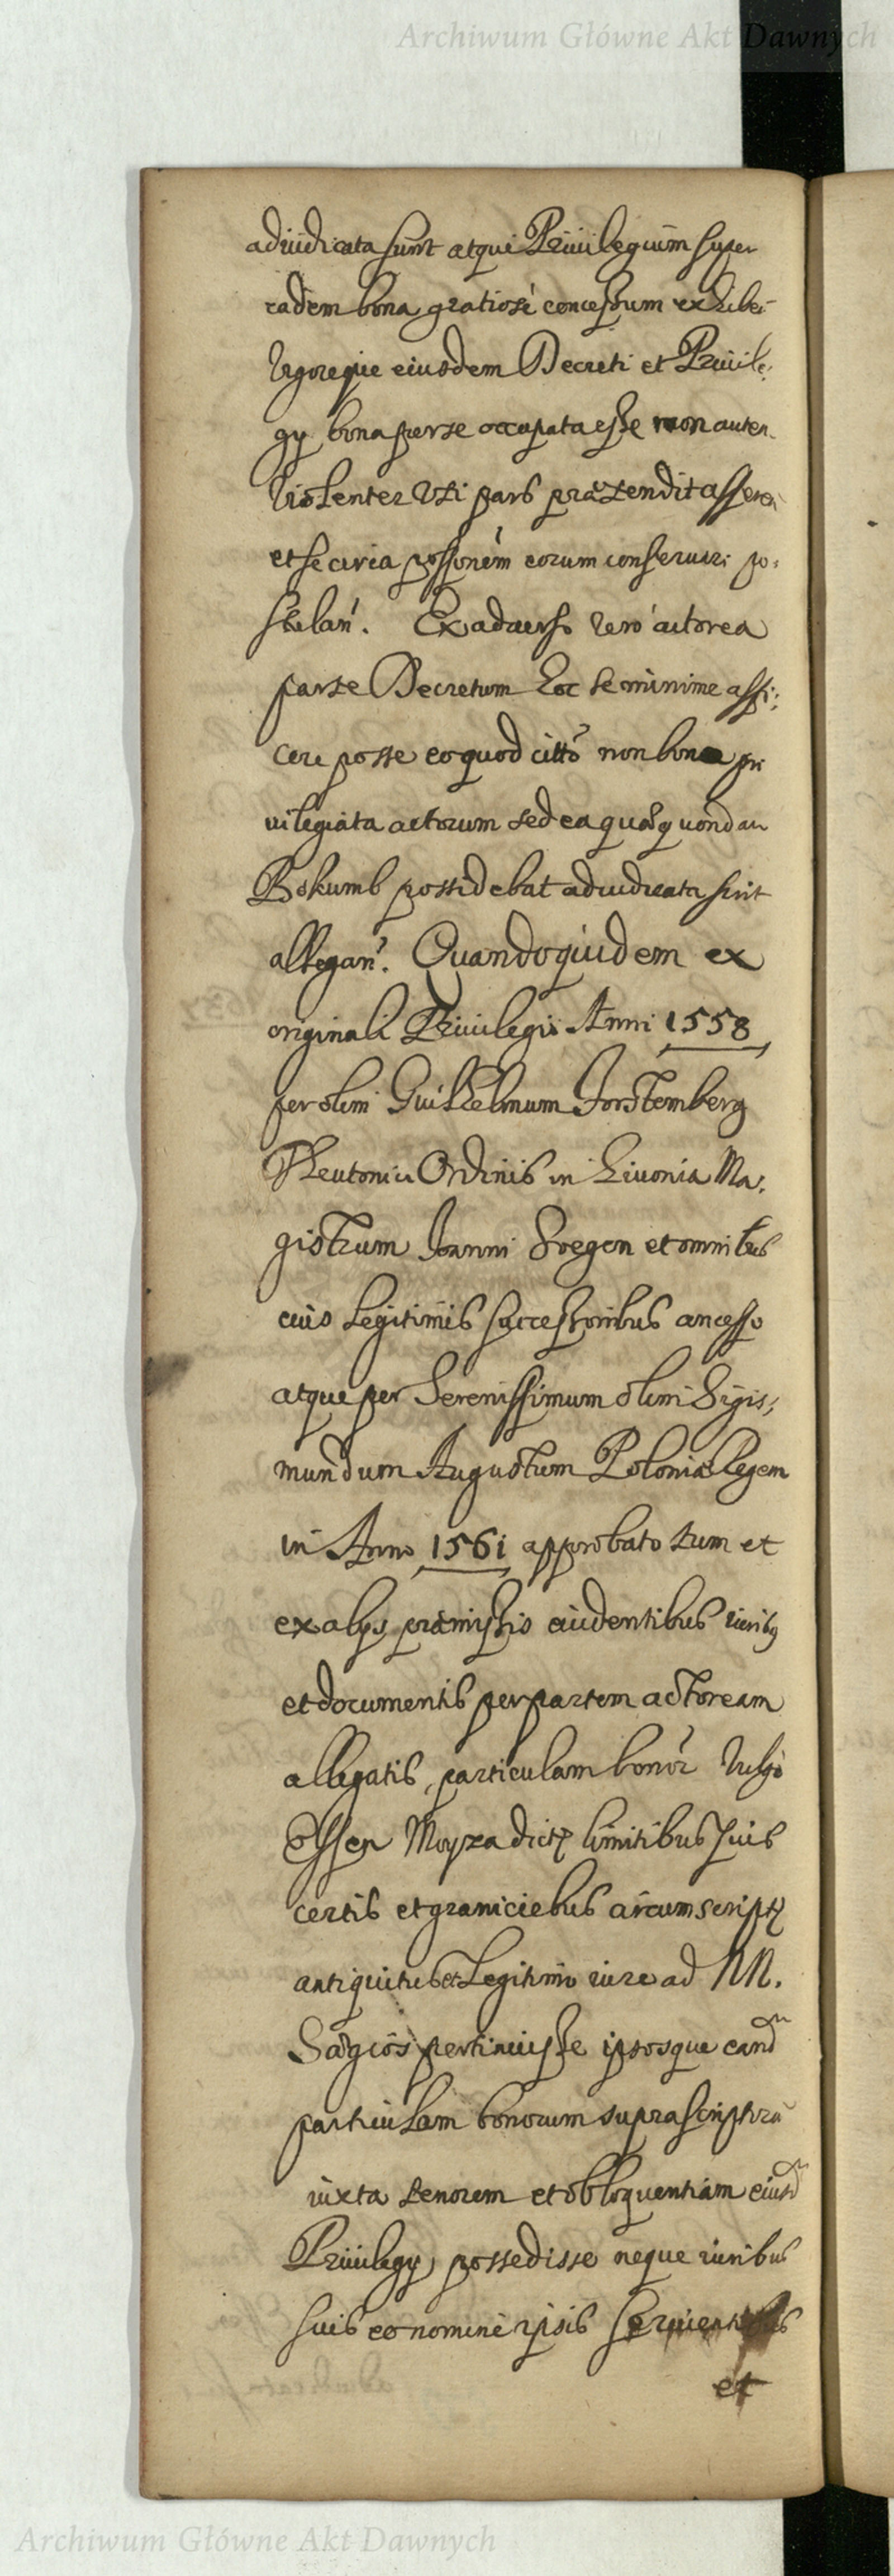 Archiwum Główne Akt Dawnych
adiudicata sunt atque Priuilegium super
eadem bona gratiosè concessum exhibet
Vigoreque eiusdem Decreti et Priuile:
gÿ bona per se occupata esse non autem
Violenter Vti pars prætendit asseren
et se circa possonem eorum conseruari po:
stulan. Ex aduerso vero actorea
parte Decretum hoc se minime affi:
cere posse eo quod citto non bona pri
uilegiata actorum sed ea quæ quondam
Bokumb possidebat adiudicata sint
allegan. Quandoquidem ex
originali Priuilegii Anni 1558
per olim Guilhelmum Forstemberg
Theutonici Ordinis in Liuonia Ma:
gistrum Joanni Soegen et omnibus
eius legitimis successoribus concesso
atque per Serenissimum olim Sigis:
mundum Augustum Poloniæ Regem
in Anno 1561 approbato tum et
ex alÿs præmissis euidentibus iuribus
et documentis per partem actoream
allegatis, particulam bonor Vulgo
Essen Moyza dictæ limitibus suis
certis et graniciebus circumscriptæ
antiquitus et Legitimo iure ad NN.
pertinuisse ipsosque eand
particulam bonorum suprascriptorum
iuxta tenorem et obloquentiam eiusd
Priuilegÿ possedisse neque iuribus
suis eo nomine ipsis seruientibus
et
Archiwum Główne Akt Dawnych